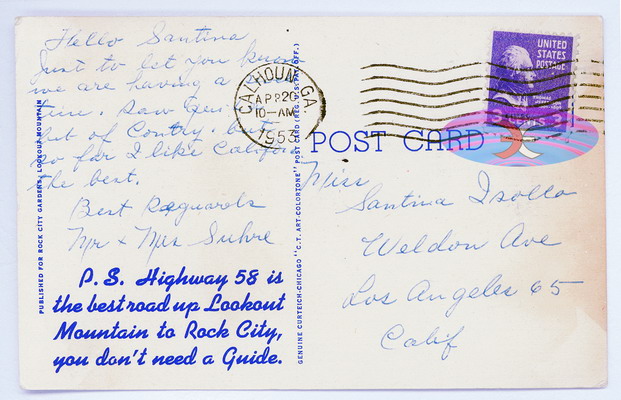 Hello Santina
Just to let you know
we are having a
time. Saw
but of
so far I like California
the best.
Best Reguards
Mr & Mrs Suhre
P.S. Highway 58 is
the best road up Lookout
Mountain to Rock City,
you don't need a Guide.
PUBLISHED FOR ROCK CITY GARDENS, LOOKOUT MOUNTAIN
GENUINE CURTEICH-CHICAGO "C.T. ART-COLORTONE" POST CARD (REG. U.S. PAT. OFF.)
CALHOUN, GA.
APR 20
10-AM
1953
UNITED
STATES
POSTAGE
3
POST CARD
Miss
Santina Isollo
Weldon Ave
Los Angeles 65
Calif